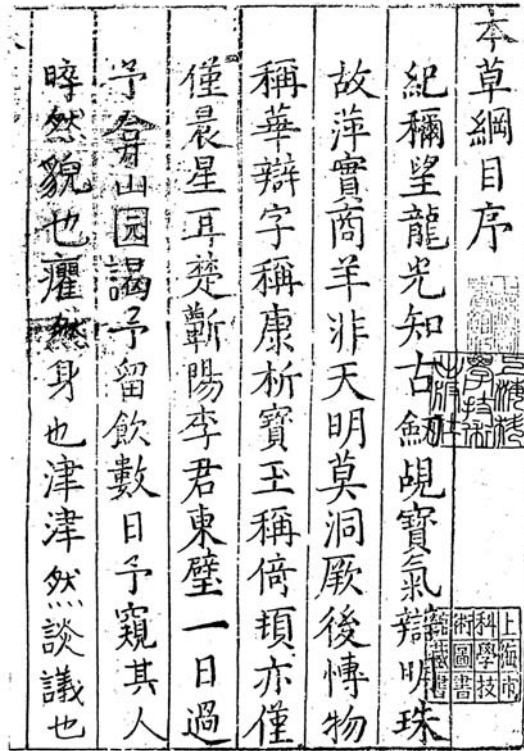 本草綱目序
紀穪望龍光知古劒覘寶氣辯明珠
故萍實商羊非天明莫洞厥後慱物
稱華辯字稱康析寶玉稱倚頓亦僅
僅晨星耳楚蘄陽李君東璧一日過
予弇山园謁予留飲數日予窺其人
睟然貌也癯然身也津津然談議也
上海科
學技術
出版社
上海市
科學技
術圖書
館藏書